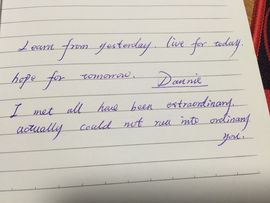 Learn from yesterday, live for today,
hope for tomorrow. Dannie
I met all have been extraordinary,
actually could not run into ordinary
you.